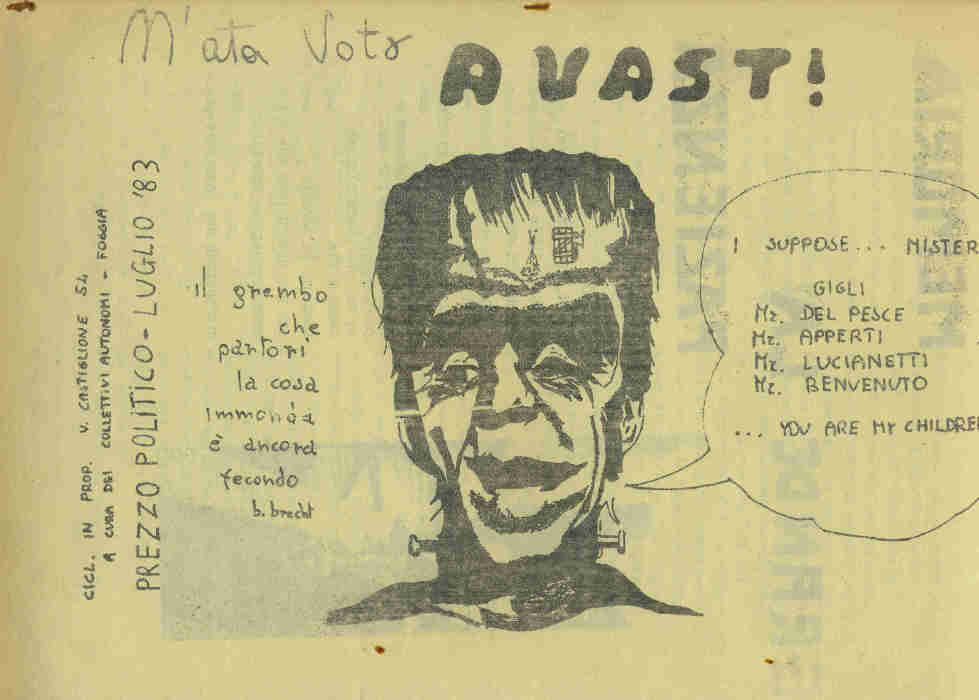 M'ata Voto
AVAST!
CICL. IN PROP. V. CASTIGLIONE 54
A CURA DEI COLLETTIVI AUTONOMI - FOGGIA
PREZZO POLITICO - LUGLIO '83
il grembo
che
partorì
la cosa
immonda
è ancora
fecondo
b. brecht
I SUPPOSE... MISTER
GIGLI
Mr. DEL PESCE
Mr. APPERTI
Mr. LUCIANETTI
Mr. BENVENUTO
... YOU ARE MY CHILDREN